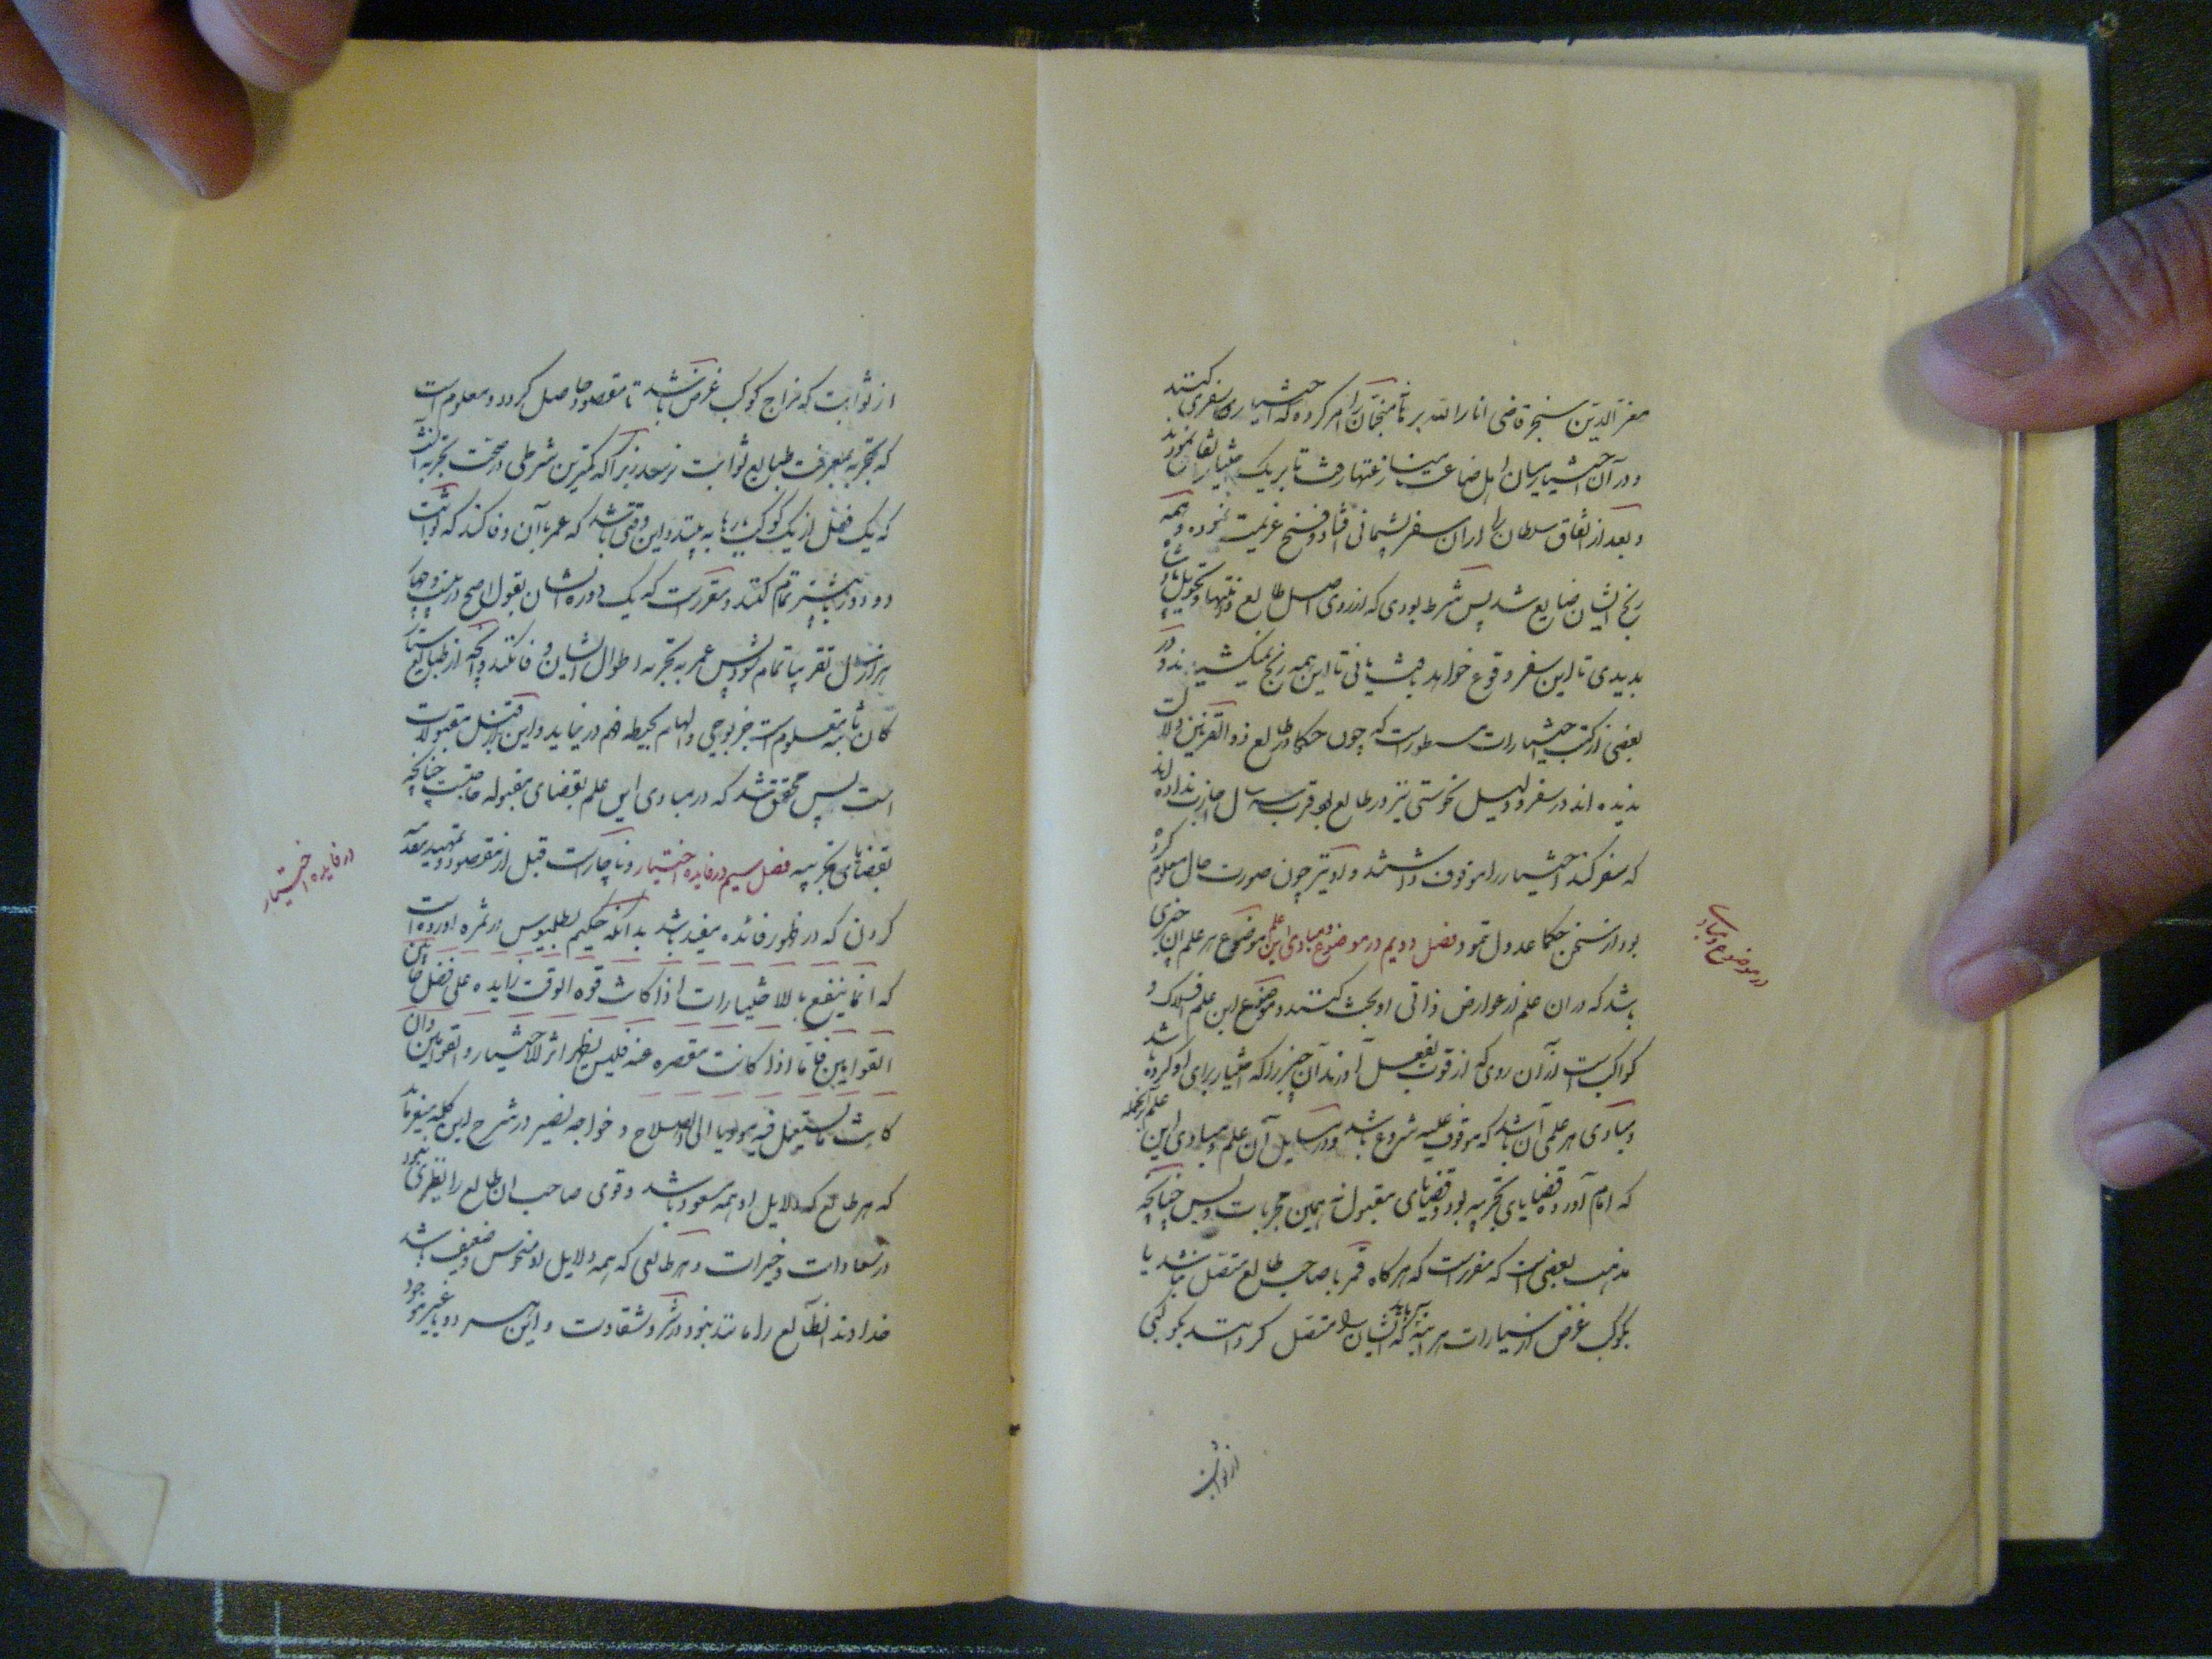 معز الدین سنجر قاضی انار الله برهانه منجمان را امر کرده که اختیاری سفری کنند
و در آن اختیار میان اهل صناعت منازعتها رفت تا بر یک اختیار اتفاق نمودند
و بعد از اتفاق سلطان را از آن سفر پشیمانی افتاد و فسخ عزیمت نموده و همه
رنج ایشان ضایع شد پس شرط بودی که از روی اصل طالع و انتهاء و تحویل
بدیدی تا این سفر وقوع خواهد یافت یا نی تا این همه رنج نمیکشیدند و در
بعضی از کتب اختیارات مسطور است که چون حکما در طالع ذو القرنین دلالت
ندیده اند در سفر و دلیل نحوستی نیز در طالع بود قرب سه سال اجازت نداده اند
که سفر کند اختیار را موقوف داشتند و او نیز چون صورت حال معلوم کرده
بود از سخن حکما عدول ننمود فصل دویم در موضوع و مبادی این علم موضوع هر علم آن چیزی
باشد که در آن علم از عوارض ذاتی او بحث کنند و موضوع این علم افلاک و
کواکب است از آن روی که از قوت بفعل آورند آن چیز را که اختیار برای او کرده باشد
و مبادی هر علمی آن باشد که موقوف علیه شروع باشد در مسایل آن علم و مبادی این علم آنجمله
که امام آورده قضایای تجربیه بود و قضایای مقبوله نه همین مجربات و بس چنانچه
مذهب بعضی است که مقرر است که هرگاه قمر با صاحب طالع متصل نباشد یا
بکوکب غرض از سیارات هر آینه باید که ایشان را متصل گردانند بکوکبی
از ثوابت
در موضوع و مبادی
از ثوابت که مزاج کوکب غرض باشد تا مقصود حاصل گردد و معلوم است
که تجربه بمعرفت طبایع ثوابت نرسد زیرا که کمترین شرطی در صحت تجربه آنست
که یک فعل از یک کوکب بارها به بیند و این وقتی باشد که عمر بآن وفا کند که ثوابت
دو دور یا بیشتر تمام کنند و مقرر است که یک دوره ایشان بقول اصح در بیست و چهار
هزار سال تقریبا تمام شود پس عمر به تجربه اطوال ایشان وفا نکند و آنچه از طبایع ستارگان
ثابته معلوم است جز بوحی و الهام بحیطه فهم در نیاید و این از قبیل مقبولات
است پس محقق شد که در مبادی این علم بقضای مقبوله حاجتست چنانچه
بقضایای تجربیه فصل سیم در فایده اختیار و ناچار است قبل از مقصود تمهید مقدمه
کردن که در ظهور فائده مفید باشد بدانکه حکیم بطلمیوس در ثمره آورده است
که انما ینتفع بالاختیارات اذا کانت قوة الوقت زایده علی فضل ما بین
القوامین فاما اذا کانت مقصره عنه فلیس یظهر اثر الاختیار و القوامین و ان
کانت ما یستعمل فیه مودیا الی الصلاح و خواجه نصیر در شرح این کلمه میفرماید
که هر طالع که دلایل او همه مسعود باشد و قوی صاحب آن طالع را نظیری نبود
در سعادات و خیرات و هر طالعی که همه دلایل او منحوس و ضعیف باشد
خداوند آن طالع را مانند نبود در شر و شقاوت و این هر دو نایاب غیر موجود
در فایده اختیار